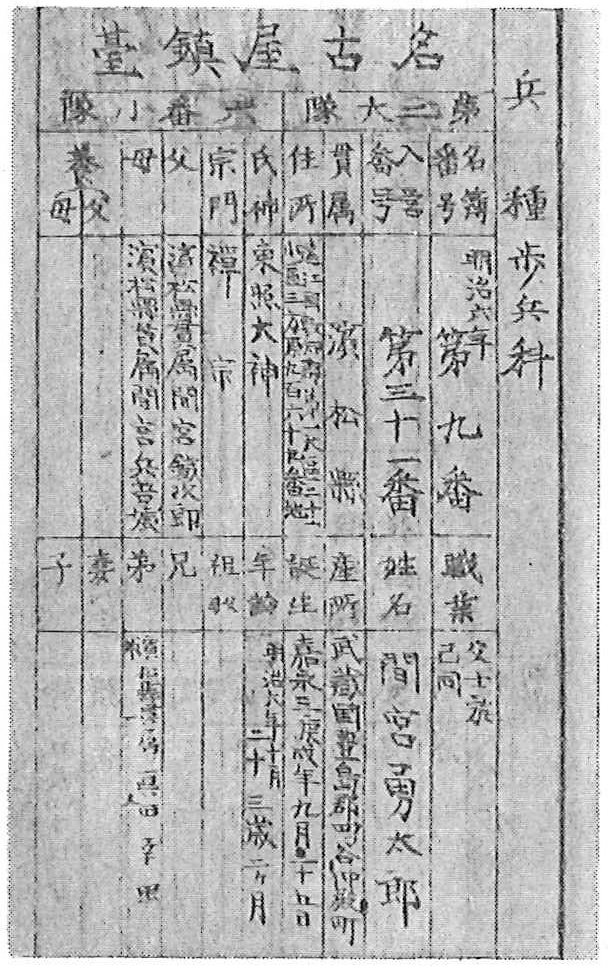 兵種 歩兵科
名古屋鎮臺
第二大隊
六番小隊
名簿番号
明治六年
第九番
入営番号
第三十一番
貫属
濱松縣
住所
小區三方原九百六十九番地
氏神
東照大神
宗門
禅宗
父
濱松縣貫属間宮鐵次郎
母
濱松縣貫属間宮兵吾
養父
母
職業
父士族
己同
姓名
間宮勇太郎
産所
武蔵國豊島郡四谷仲殿町
誕生
嘉永三庚戌年九月二十五日
年齢
明治六年十月
二十三歳二ヶ月
祖
兄
弟
妻
子